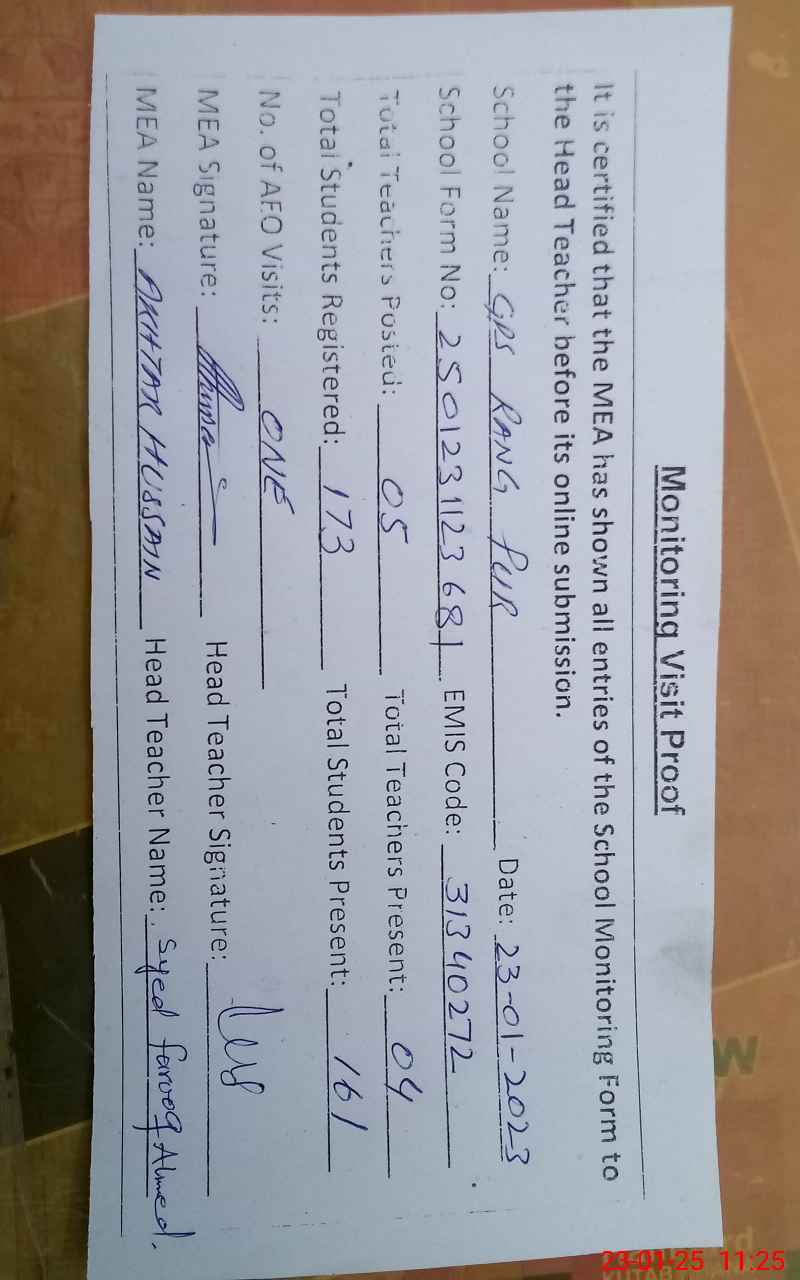 Monitoring Visit Proof
It is certified that the MEA has shown all entries of the School Monitoring Form to
the Head Teacher before its online submission.
School Name: GPS RANG PUR Date: 23-01-2023
School Form No: 2501231123681 EMIS Code: 31340272
Total Teachers Posted: 05 Total Teachers Present: 04
Total Students Registered: 173 Total Students Present: 161
No. of AEO Visits: ONE
MEA Signature: Head Teacher Signature:
MEA Name: AKHTAR HUSSAIN Head Teacher Name: Syed farooq Ahmed.
23-01-25 11:25